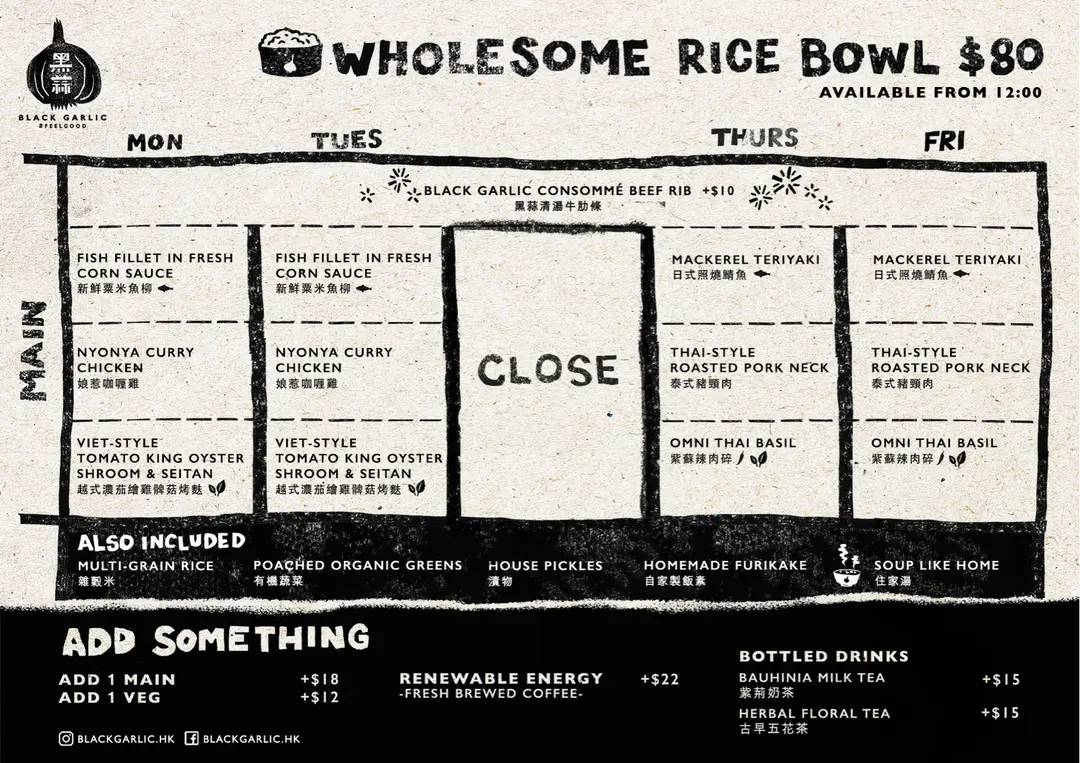 黑蒜
BLACK GARLIC
#FEELGOOD
WHOLESOME RICE BOWL $80
AVAILABLE FROM 12:00
MON
TUES
THURS
FRI
MAIN
BLACK GARLIC CONSOMMÉ BEEF RIB +$10
黑蒜清湯牛肋條
FISH FILLET IN FRESH
CORN SAUCE
新鮮粟米魚柳
NYONYA CURRY
CHICKEN
娘惹咖喱雞
VIET-STYLE
TOMATO KING OYSTER
SHROOM & SEITAN
越式濃茄繪雞髀菇烤麩
FISH FILLET IN FRESH
CORN SAUCE
新鮮粟米魚柳
NYONYA CURRY
CHICKEN
娘惹咖喱雞
VIET-STYLE
TOMATO KING OYSTER
SHROOM & SEITAN
越式濃茄繪雞髀菇烤麩
CLOSE
MACKEREL TERIYAKI
日式照燒鯖魚
THAI-STYLE
ROASTED PORK NECK
泰式豬頸肉
OMNI THAI BASIL
紫蘇辣肉碎
MACKEREL TERIYAKI
日式照燒鯖魚
THAI-STYLE
ROASTED PORK NECK
泰式豬頸肉
OMNI THAI BASIL
紫蘇辣肉碎
ALSO INCLUDED
MULTI-GRAIN RICE
雜穀米
POACHED ORGANIC GREENS
有機蔬菜
HOUSE PICKLES
漬物
HOMEMADE FURIKAKE
自家製飯素
SOUP LIKE HOME
住家湯
ADD SOMETHING
ADD 1 MAIN +$18
ADD 1 VEG +$12
RENEWABLE ENERGY +$22
-FRESH BREWED COFFEE-
BOTTLED DRINKS
BAUHINIA MILK TEA +$15
紫荊奶茶
HERBAL FLORAL TEA +$15
古早五花茶
BLACKGARLIC.HK BLACKGARLIC.HK